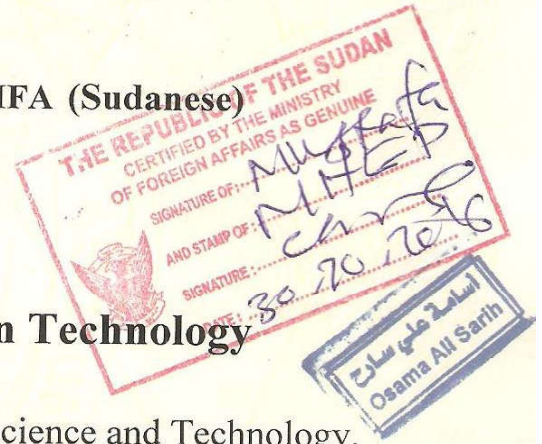 IFA (Sudanese)
THE REPUBLIC OF THE SUDAN
CERTIFIED BY THE MINISTRY
OF FOREIGN AFFAIRS AS GENUINE
SIGNATURE OF:
AND STAMP OF:
SIGNATURE:
DATE: 30
n Technology
أسامة علي سارح
Osama Ali Sarih
cience and Technology.